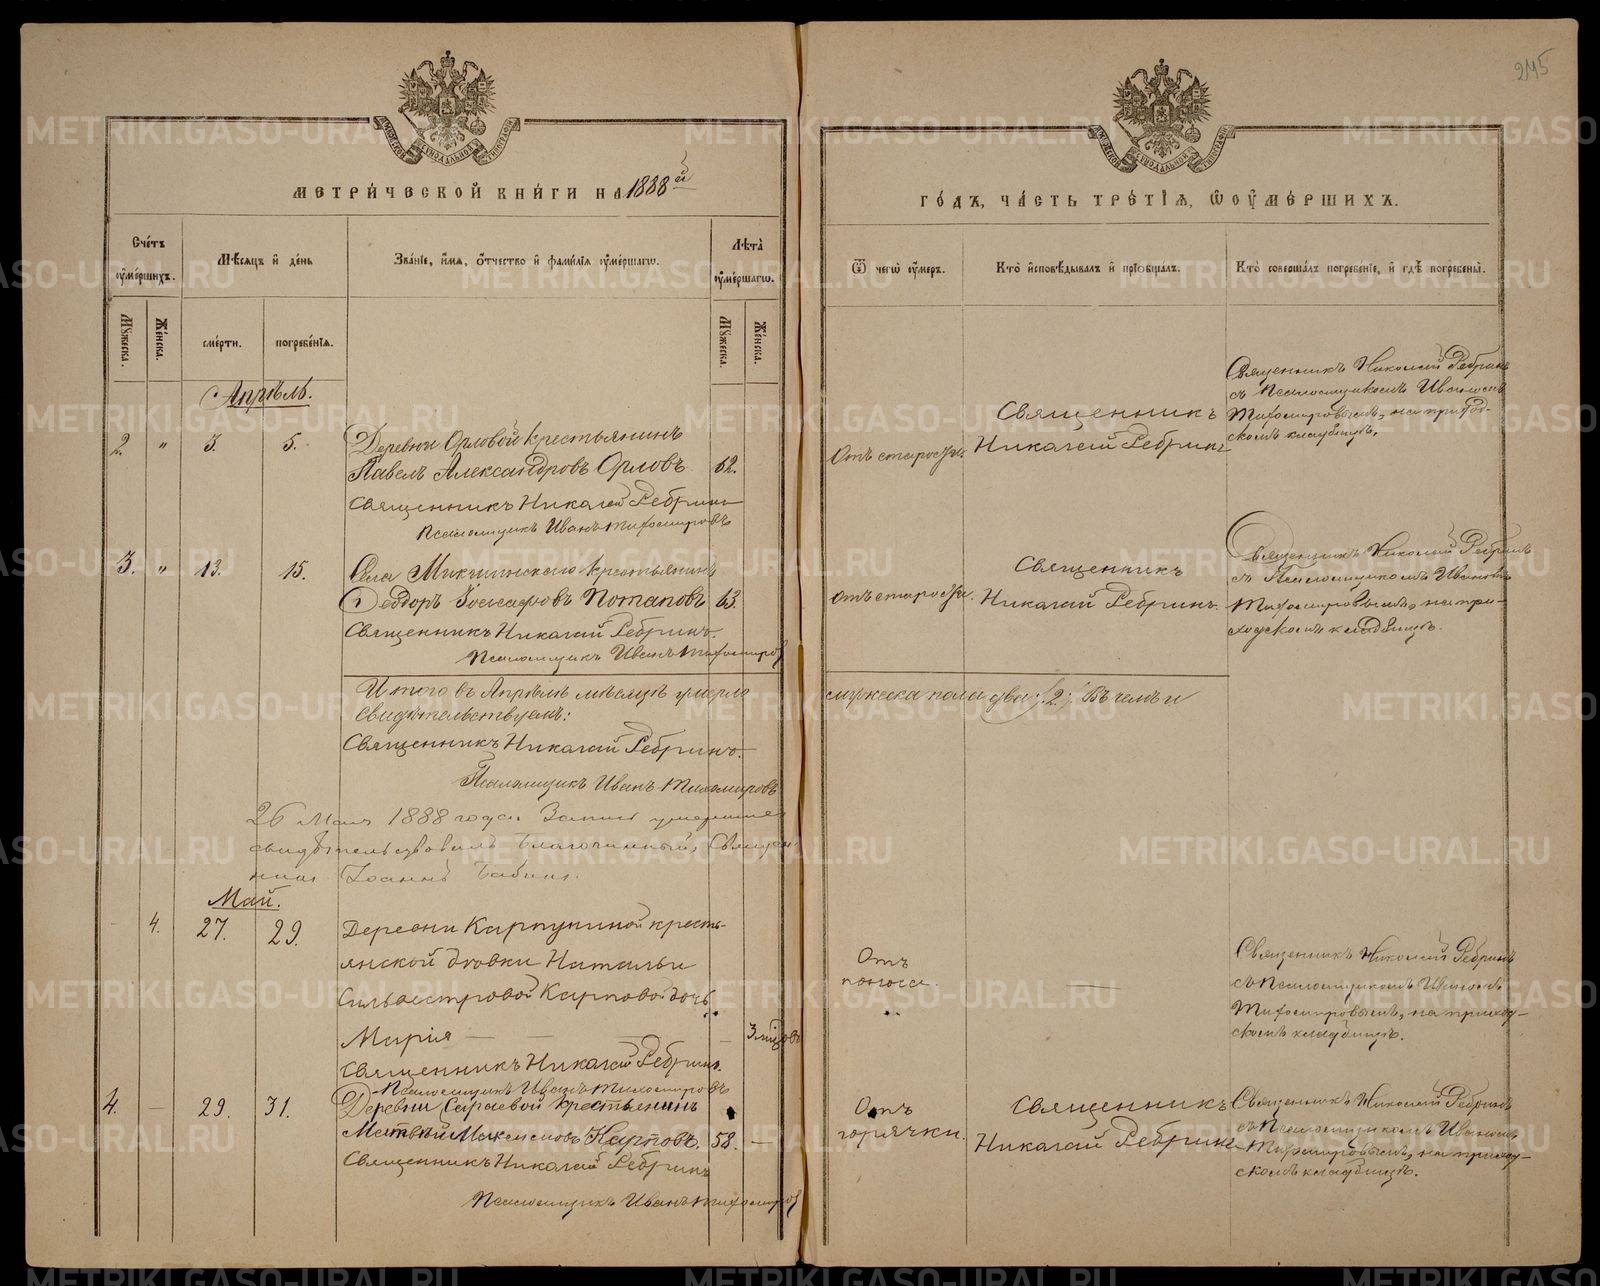 245
МЕТРИЧЕСКОЙ КНИГИ НА 1888й
ГОДЪ, ЧАСТЬ ТРЕТІЯ, Ѿ ОУМЕРШИХЪ.
Счетъ оумершихъ.
Мѣсяцъ и день
Званіе, имя, отчество и фамилія оумершагѡ.
Лѣта оумершагѡ.
Ѿ чегѡ оумеръ.
Кто исповѣдывалъ и пріобщалъ.
Кто совершалъ погребеніе, и гдѣ погребены.
Мужеска.
Женска.
смерти.
погребенія.
Мужеска.
Женска.
Апрѣль.
2. " 3. 5. Деревни Орловой крестьянинъ
Павелъ Александровъ Орловъ 62.
Священникъ Николай Ребринъ
Псаломщикъ Иванъ Тихомировъ
Отъ старости.
Священникъ
Николай Ребринъ
Священникъ Николай Ребринъ
съ Псаломщикомъ Иваномъ
Тихомировымъ, на приход-
скомъ кладбищѣ.
3. " 13. 15. Села крестьянинъ
Ѳеодоръ Потаповъ 63.
Священникъ Николай Ребринъ.
Псаломщикъ Иванъ Тихомиров
Отъ старости.
Священникъ
Николай Ребринъ.
Священникъ Николай Ребринъ
съ Псаломщикомъ Иваномъ
Тихомировымъ, на при-
ходскомъ кладбищѣ.
Итого въ Апрѣлѣ мѣсяцѣ умерло мужеска пола два /:2:/. Въ чемъ и
свидѣтельствуемъ:
Священникъ Николай Ребринъ.
Псаломщикъ Иванъ Тихомировъ
26 Мая 1888 года Запись умершихъ
свидѣтельствовалъ Благочинный, Священ-
никъ Іоаннъ Бабинъ.
Май.
4. 27. 29. Деревни Карпушиной кресть-
янской вдовки Натальи
Сильвестровой Карповой дочь
Марія — 3 годовъ
Священникъ Николай Ребринъ.
Псаломщикъ Иванъ Тихомировъ
Отъ
поноса.
Священникъ Николай Ребринъ
съ Псаломщикомъ Иваномъ
Тихомировымъ, на приход-
скомъ кладбищѣ.
4. — 29. 31. Деревни Сараевой крестьянинъ
Матвѣй Максимовъ Карповъ. 58. —
Священникъ Николай Ребринъ
Псаломщикъ Иванъ Тихомиров
Отъ
горячки.
Священникъ
Николай Ребринъ
Священникъ Николай Ребринъ
съ Псаломщикомъ Иваномъ
Тихомировымъ, на приход-
скомъ кладбищѣ.
METRIKI.GASO-URAL.RU